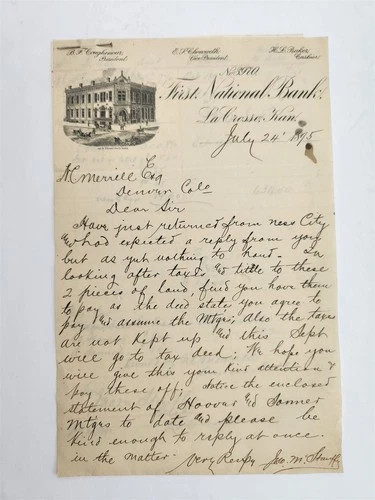 President.
E.L. Chenoweth
Vice President.
H.L. Baker,
Cashier.
No. 3970.
First National Bank,
La Crosse, Kan.
July 24' 1895
Merrill Esq
Denver Colo
Dear Sir
Have just returned from Ness City
and had expected a reply from you
but as yet nothing to hand. In
looking after taxes and title to these
2 pieces of land, find you have them
to pay as the deed state, you agree to
pay and assume the Mtgs; also the taxes
are not kept up and this Sept
will go to tax deed; We hope you
will give this your kind attention &
pay these off; Notice the enclosed
statement of Hoover and
Mtgs to date and please be
kind enough to reply at once.
in the matter. Very Respy Geo. M.